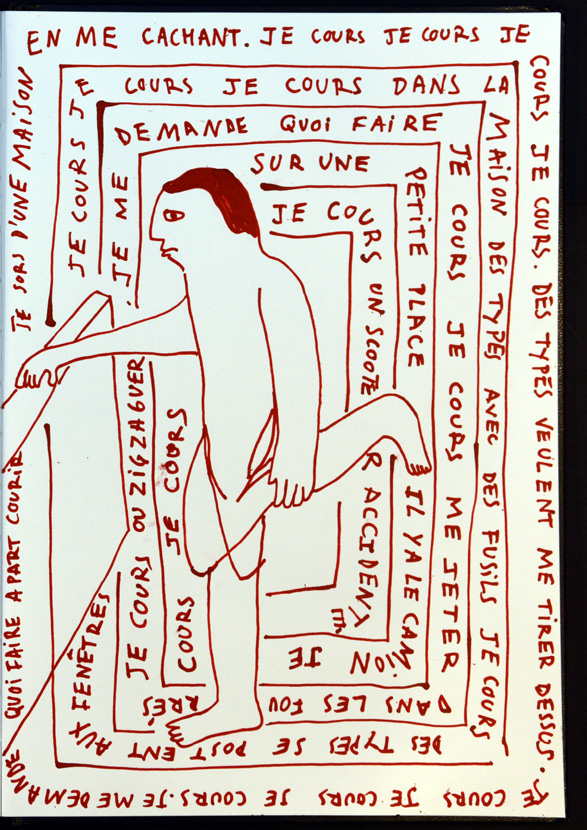 JE SORS D'UNE MAISON
EN ME CACHANT. JE COURS JE COURS JE
COURS JE COURS. DES TYPES VEULENT ME TIRER DESSUS.
JE COURS JE COURS JE COURS. JE ME DEMANDE
QUOI FAIRE APART COURIR
JE COURS JE
COURS JE COURS DANS LA
MAISON DES TYPES AVEC DES FUSILS JE COURS
DES TYPES SE POSTENT
AUX FENÊTRES
. JE ME
DEMANDE QUOI FAIRE
JE COURS JE COURS ME JETER
DANS LES FOURRÉS
JE COURS OU ZIGZAGUER
SUR UNE
PETITE PLACE IL YA LE CAMION
JE
COURS JE COURS
JE COURS UN SCOOTER ACCIDENTÉ